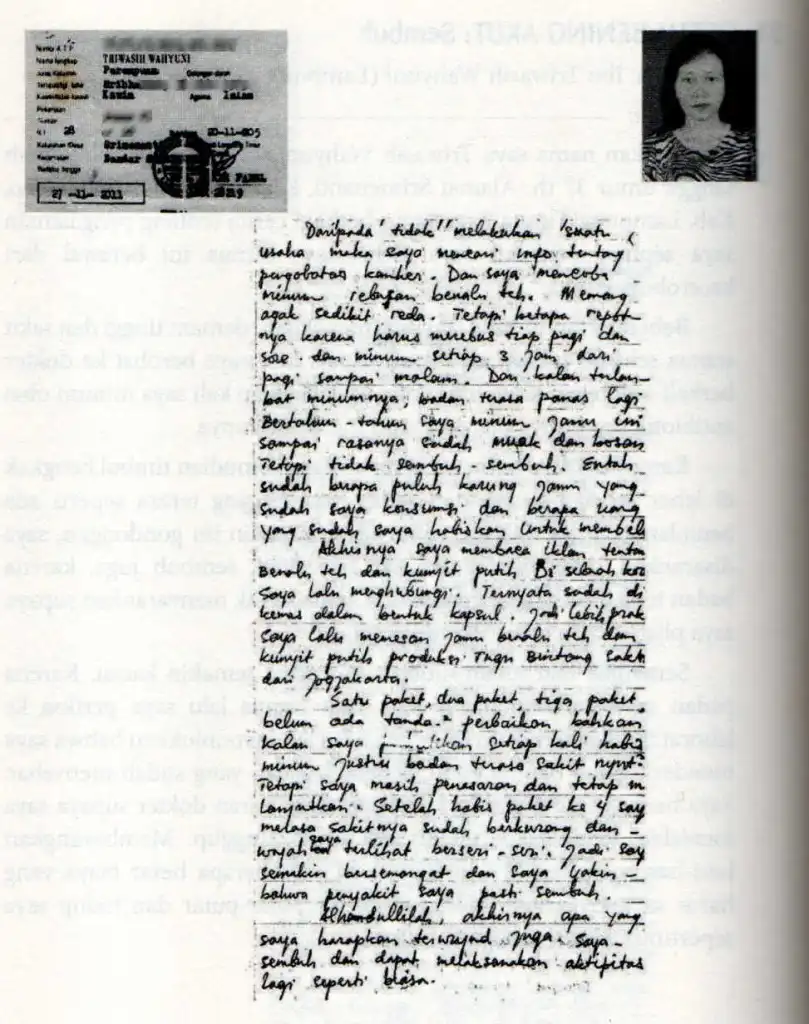 TRIWASIH WAHYUNI
Perempuan
Kawin Agama Islam
28
20-11-205
27 -11- 2011
Daripada tidak" melakukan suatu
usaha maka saya mencari info tentang
pengobatan kanker. Dan saya mencoba
minum rebusan benalu teh. Memang
agak sedikit reda. Tetapi betapa repot
nya karena harus merebus tiap pagi dan
sore dan minum setiap 3 jam dari
pagi sampai malam. Dan kalau terlam
bat minumnya, badan terasa panas lagi
Bertahun-tahun saya minum jamu ini
sampai rasanya sudah muak dan bosan
Tetapi tidak sembuh sembuh. Entah
sudah berapa puluh karung jamu yang
sudah saya konsumsi dan berapa uang
yang sudah saya habiskan untuk membeli
Akhirnya saya membaca iklan tentan
Benalu teh dan kunyit putih Di sebuah kor
Saya lalu menghubungi. Ternyata sudah di
kemas dalam bentuk kapsul. Jadi lebih prak
saya lalu memesan jamu benalu teh dan
kunyit putih produksi Tugu Bintang Sakti
dari Jogjakarta.
Satu paket, dua paket tiga paket
belum ada tanda" perbaikan bahkan
kalau saya setiap kali habis
minum justru badan terasa sakit
Tetapi saya masih penasaran dan tetap
lanjutkan. Setelah habis paket ke 4 say
merasa sakitnya sudah berkurang dan
wajah saya terlihat berseri seri. Jadi say
semakin bersemangat dan saya yakin
bahwa penyakit saya pasti sembuh.
Alhamdullilah, akhirnya apa yang
saya harapkan terwujud juga. Saya
sembuh dan dapat melaksanakan aktipitas
lagi seperti biasa.